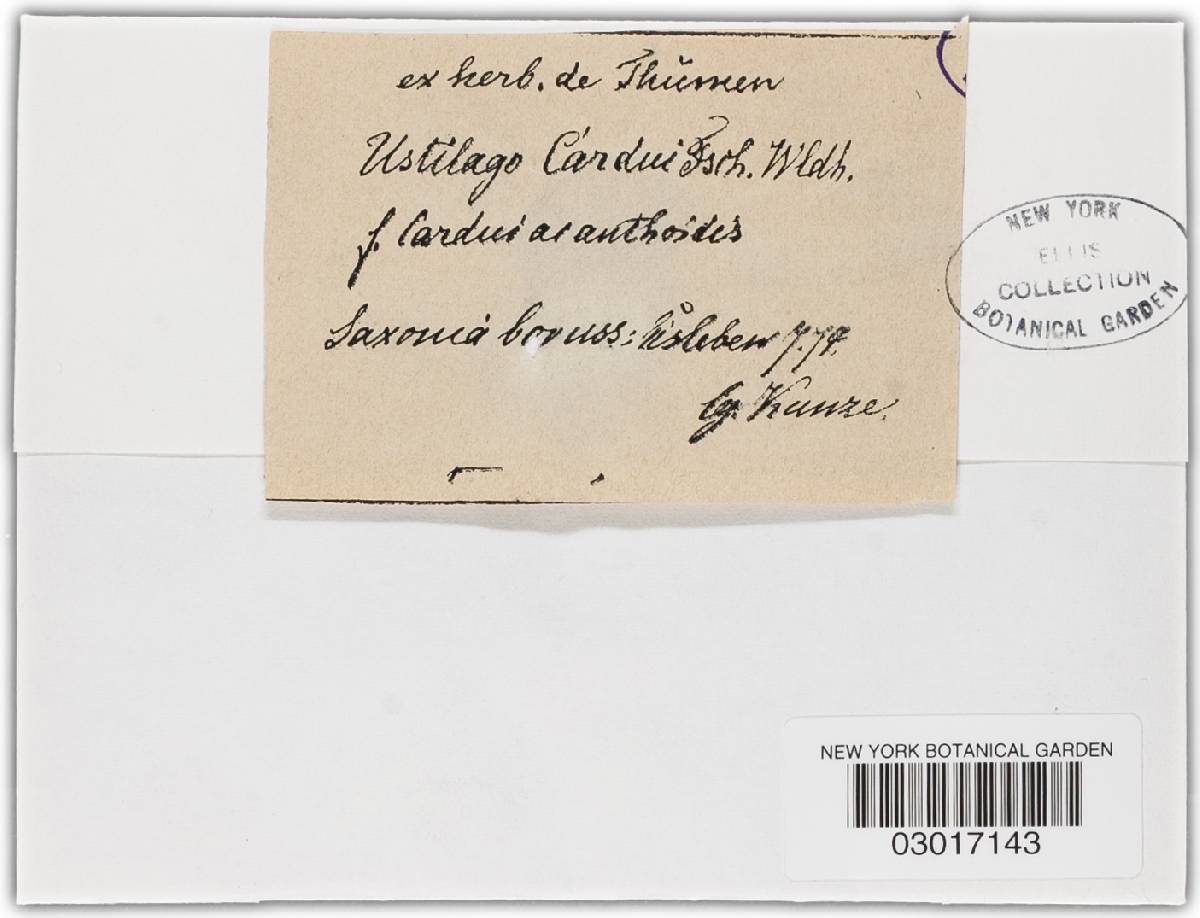 ex herb. de Thümen
Ustilago Cardui Fsch. Wldh.
f. Cardui acanthoides
Saxonia boruss: Eisleben 7.74.
lg. Kunze.
NEW YORK
ELLIS
COLLECTION
BOTANICAL GARDEN
NEW YORK BOTANICAL GARDEN
03017143